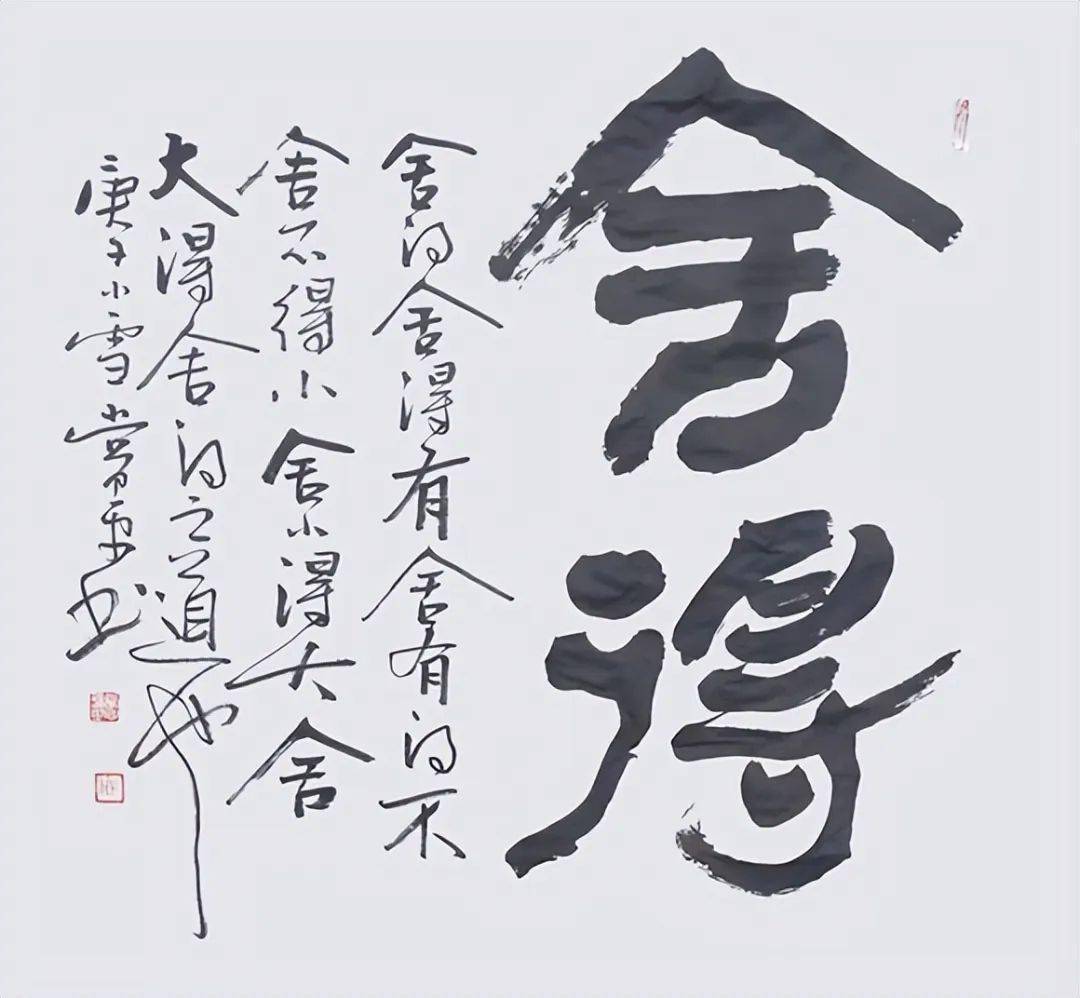 舍得
舍得舍得有舍有得不
舍不得小舍小得大舍
大得舍得之道也
庚子小雪常书